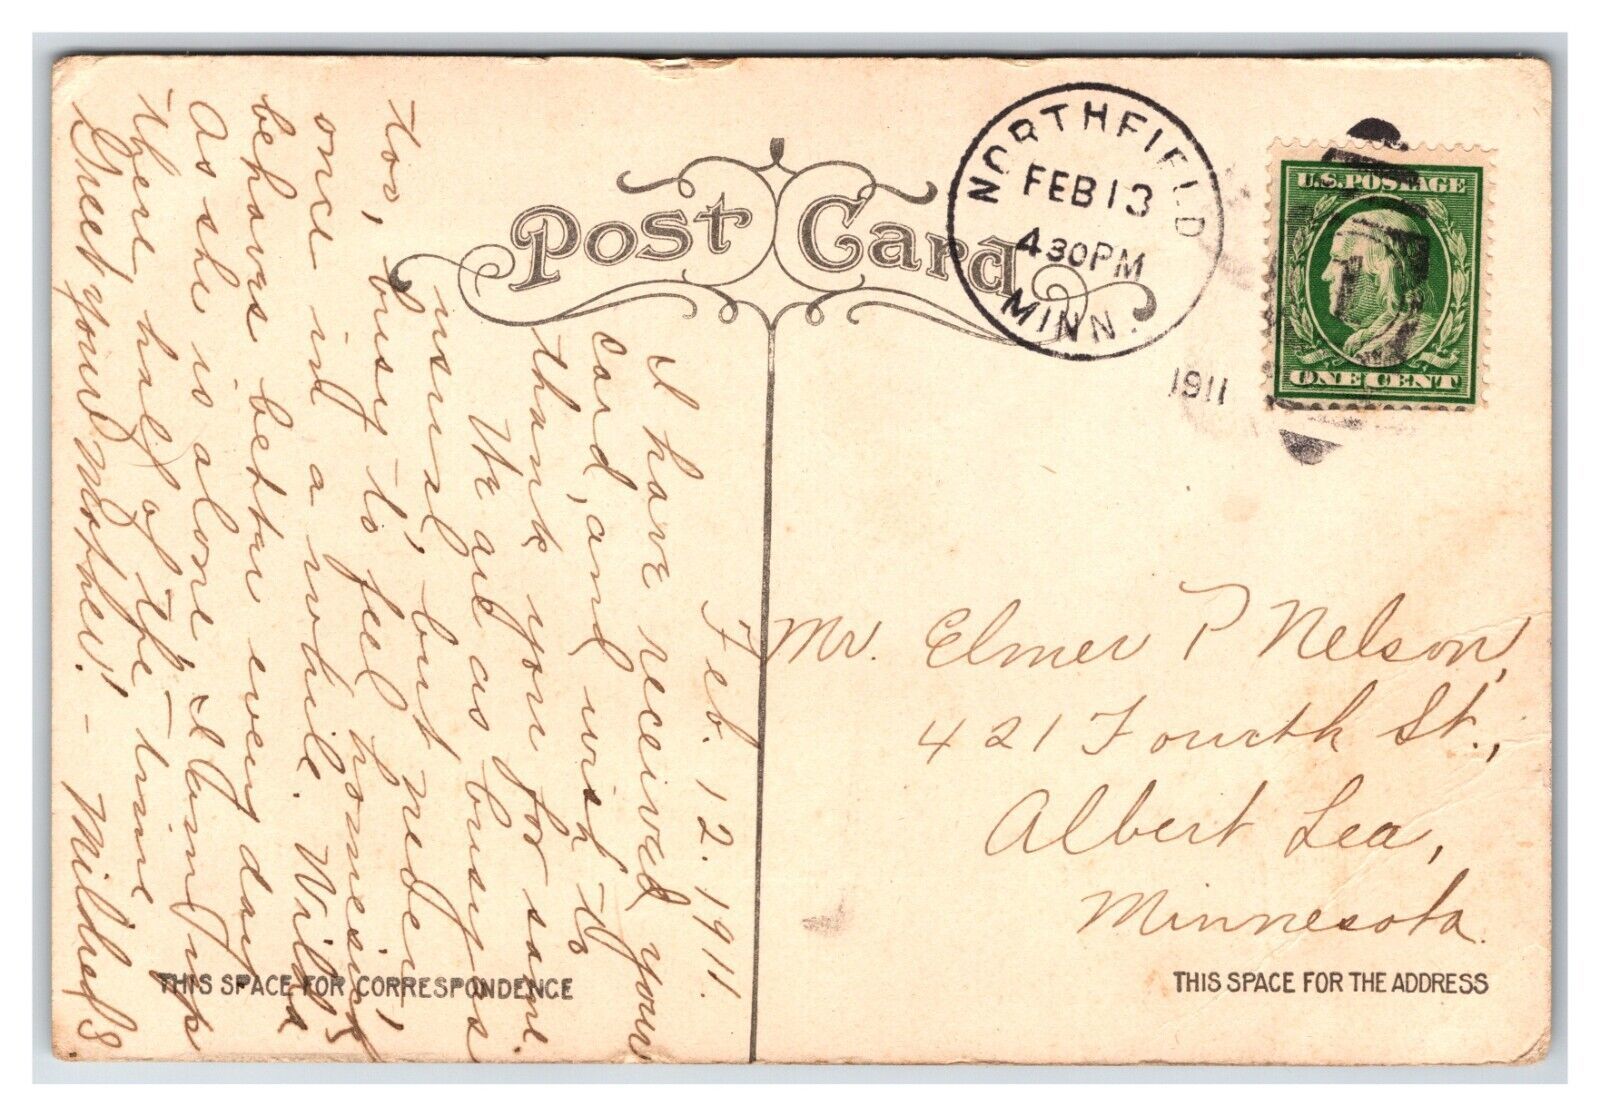 Post Card
NORTHFIELD
FEB 13
4 30 PM
MINN.
1911
U.S. POSTAGE
ONE CENT
Feb. 12. 1911.
I have received your
card, and wish to
thank you for same
We are as busy as
usual, but
too, busy to feel homesick
once in a while.
behaves better every day
As she is alone, I am up
there, half of the time
Greet your Mother! - Mildred S
Mr. Elmer P Nelson,
421 Fourth St.,
Albert Lea,
Minnesota.
THIS SPACE FOR CORRESPONDENCE
THIS SPACE FOR THE ADDRESS